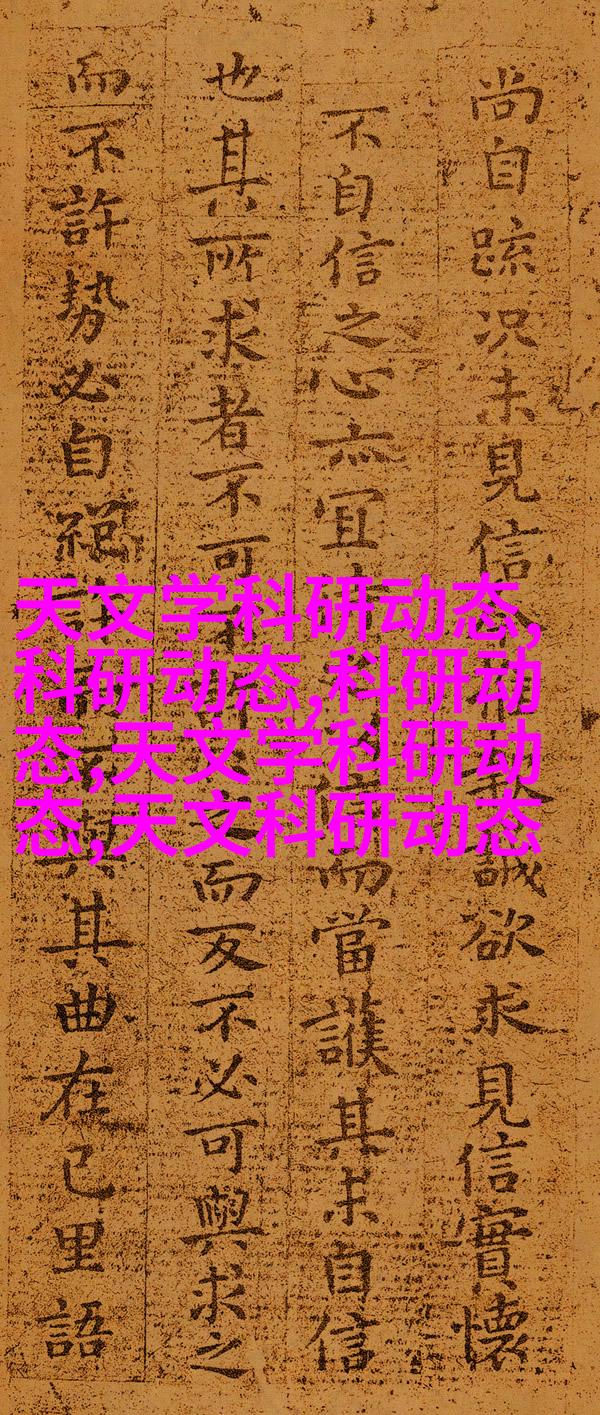 尚自疏况未見信誠欲求見信實懷
不自信之心亦宜而當護其未自信
也其所求者不可之而反不必可與求之
而不許勢必自絕許與其曲在己里語
天文学科研动态,
科研动态,科研动
态,天文学科研动
态,天文科研动态